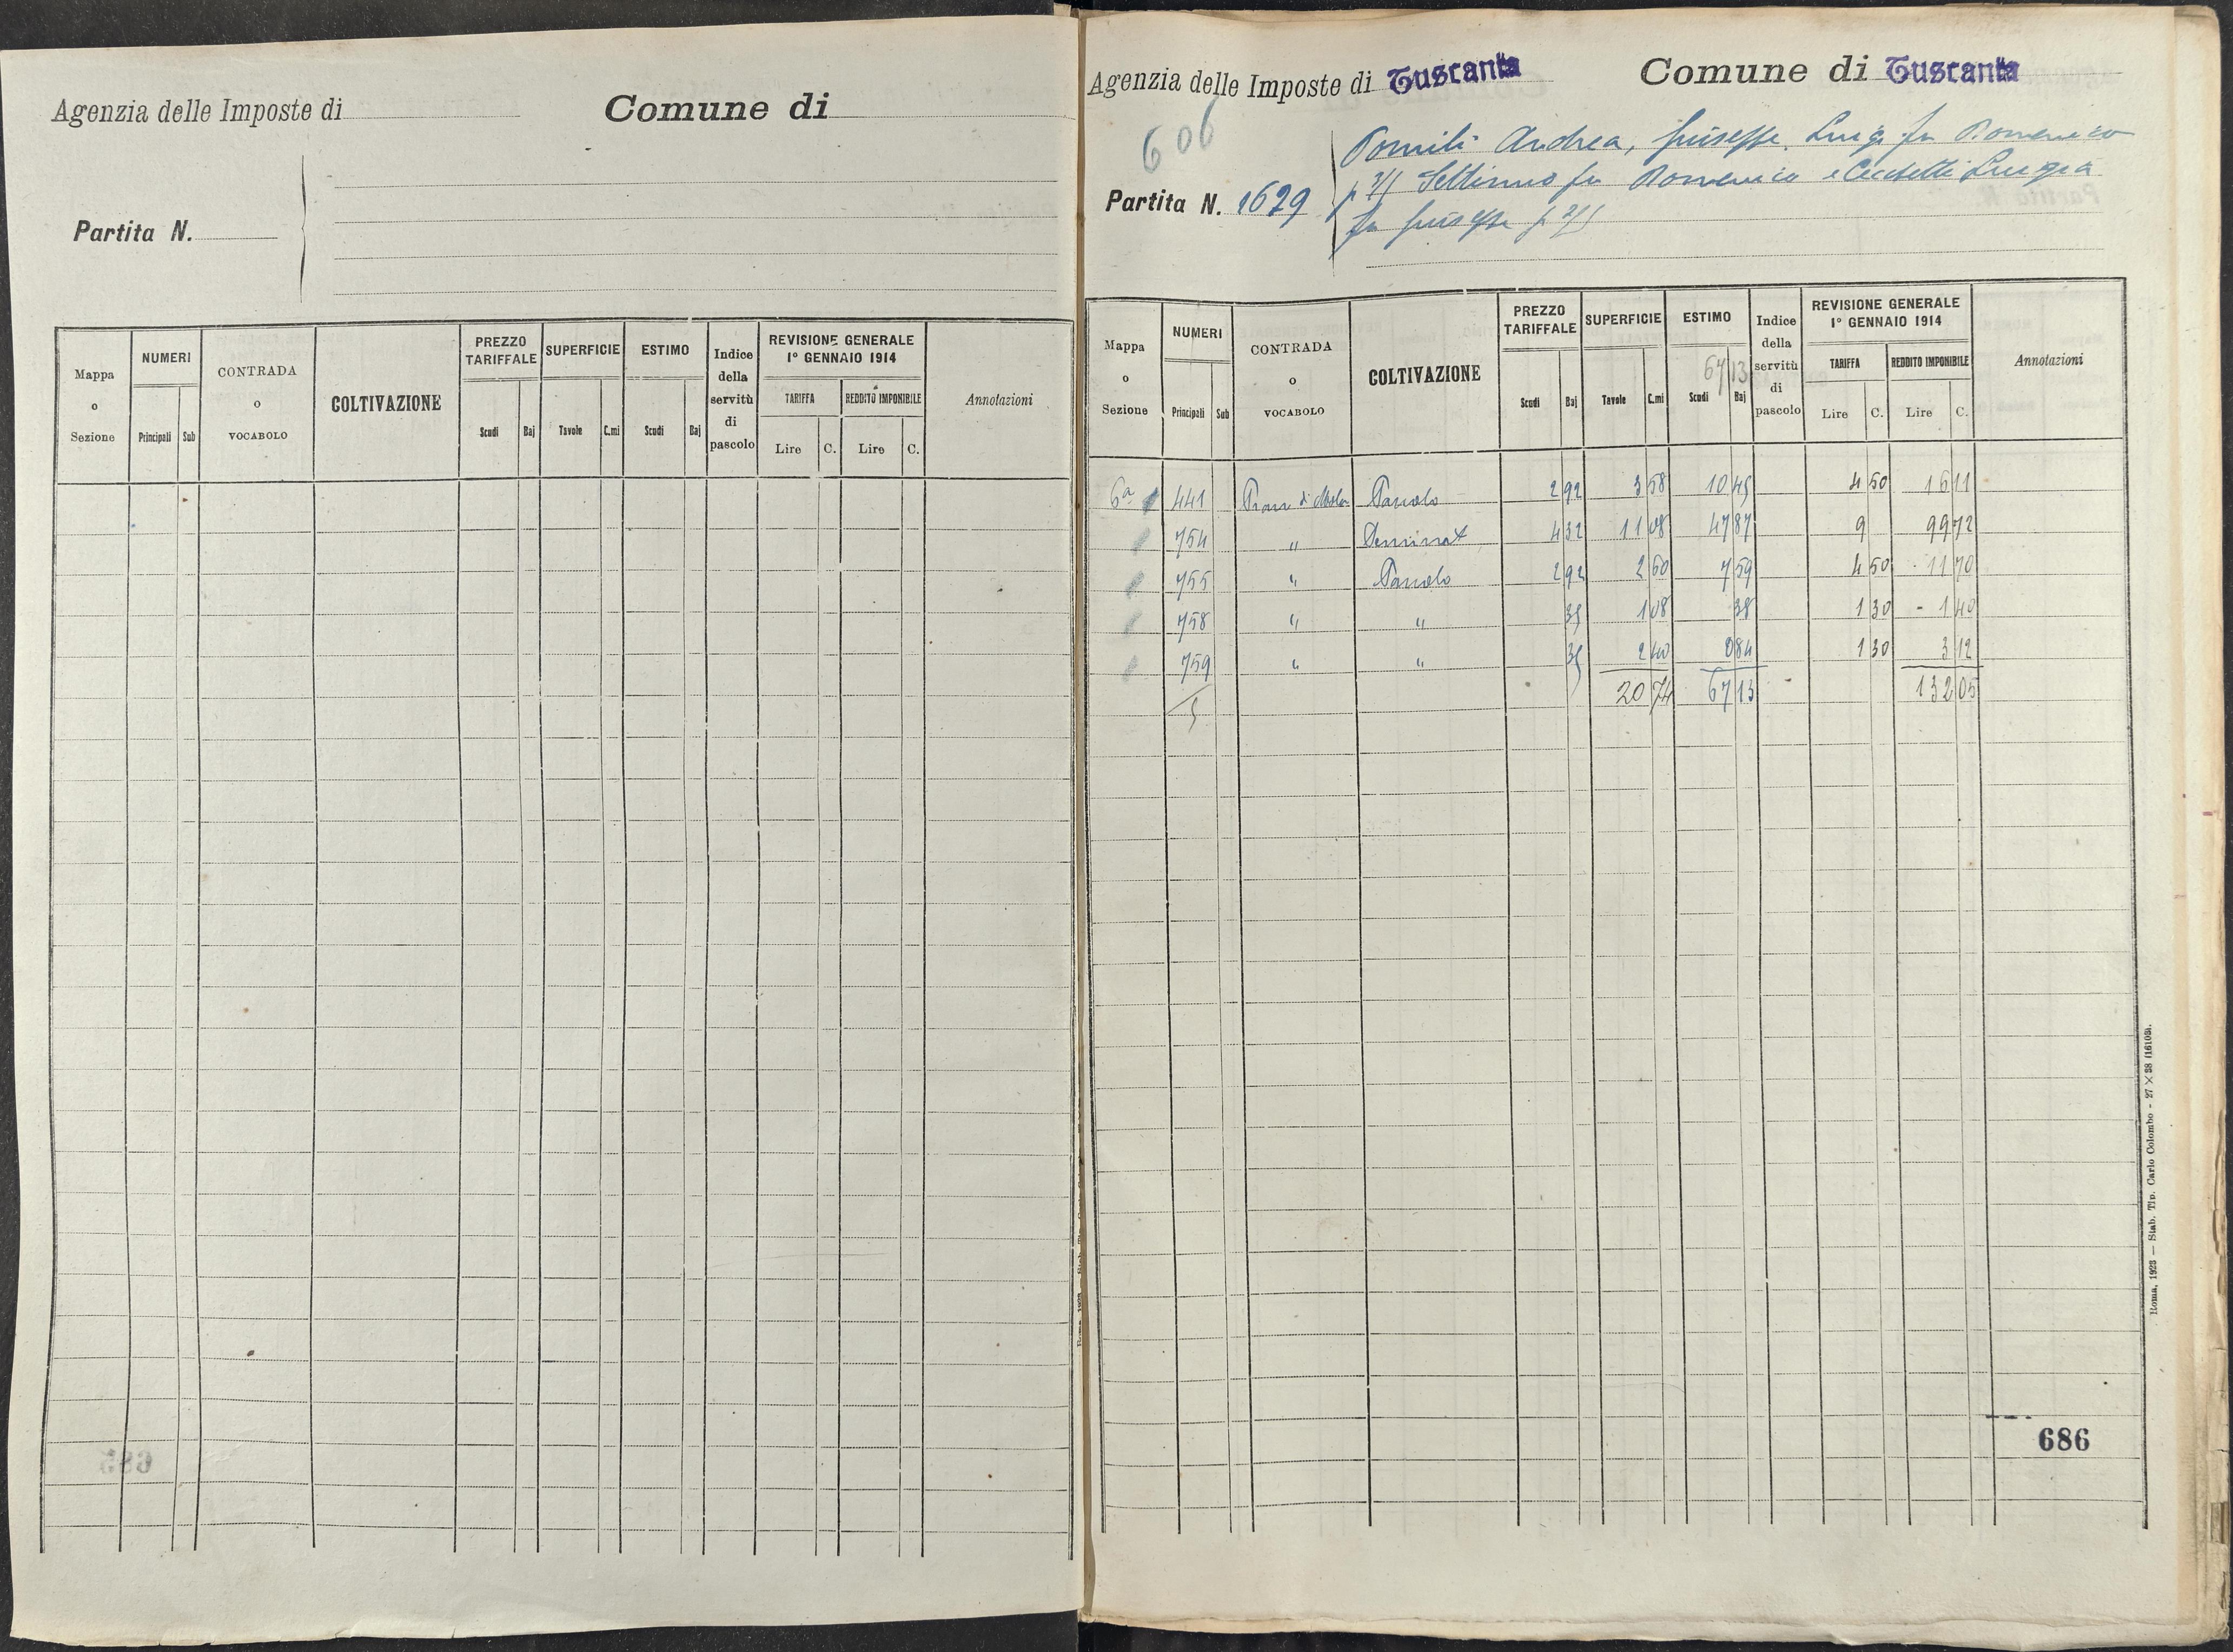 Agenzia delle Imposte di
Comune di
Partita N.
Mappa o Sezione
NUMERI
Principali Sub
CONTRADA o VOCABOLO
COLTIVAZIONE
PREZZO TARIFFALE
Scudi Baj
SUPERFICIE
Tavole C.mi
ESTIMO
Scudi Baj
Indice della servitù di pascolo
REVISIONE GENERALE 1° GENNAIO 1914
TARIFFA
Lire C.
REDDITO IMPONIBILE
Lire C.
Annotazioni
Agenzia delle Imposte di Tuscania
Comune di Tuscania
606
Partita N. 1629
Andrea, Giuseppe, Luigi fu Domenico
Settimio fu Domenico e Luigia
fu Giuseppe
Mappa o Sezione
NUMERI
Principali Sub
CONTRADA o VOCABOLO
COLTIVAZIONE
PREZZO TARIFFALE
Scudi Baj
SUPERFICIE
Tavole C.mi
ESTIMO
67 13
Scudi Baj
Indice della servitù di pascolo
REVISIONE GENERALE 1° GENNAIO 1914
TARIFFA
Lire C.
REDDITO IMPONIBILE
Lire C.
Annotazioni
6a 441 Pian di Mola Pascolo 2 92 3 58 10 45 4 50 16 11
754 " Seminat 4 32 11 08 47 87 9 99 72
755 " Pascolo 2 92 2 60 7 59 4 50 11 70
758 " " 35 1 08 38 1 30 1 40
759 " " 35 2 40 0 84 1 30 3 12
5 20 74 67 13 132 05
686
Roma, 1923 — Stab. Tip. Carlo Colombo - 27 × 38 (16103).